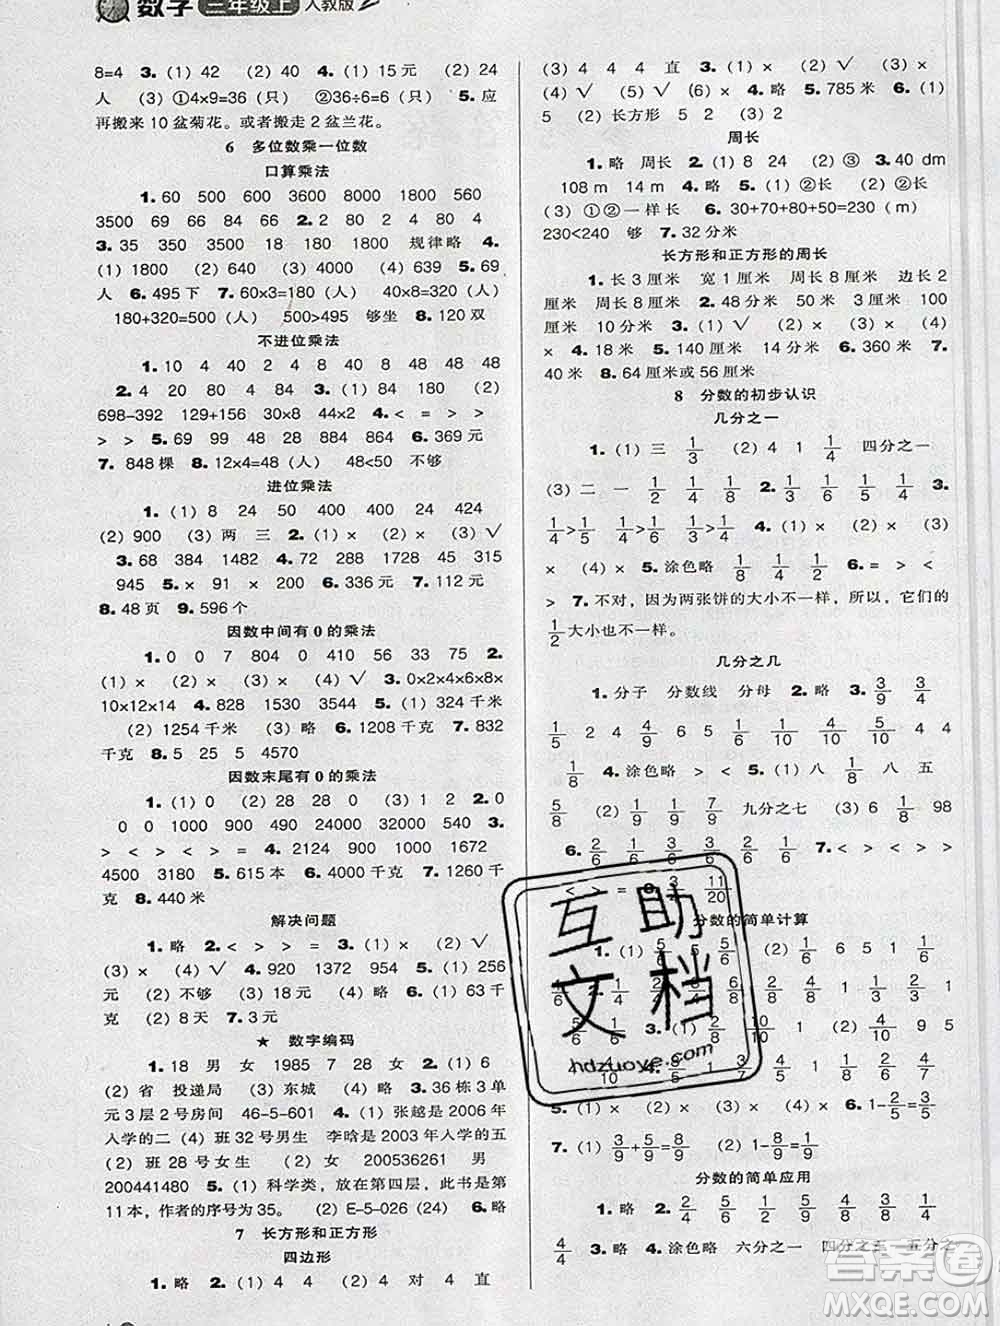 数学 三年级上 人教版
8=4 3. (1) 42 (2) 40 4. (1) 15元 (2) 24
人 (3) ①4×9=36（只） ②36÷6=6（只） 5. 应
再搬来10盆菊花。或者搬走2盆兰花。
6 多位数乘一位数
口算乘法
1. 60 500 600 600 1800 1800 560
3500 69 66 84 66 2. 2 80 2 4 80 4
3. 35 350 3500 18 180 1800 规律略 4.
(1) 1800 (2) 640 (3) 4000 (4) 639 5. 69
人 6. 495下 7. 60×3=180（人） 4×80=320（人）
180+320=500（人） 500>495 够坐 8. 120双
不进位乘法
1. 10 4 40 20 4 80 8 40 48 48
2. 4 20 80 4 84 3. (1) 84 180 (2)
698-392 129+156 30×8 44×2 4. < = > >
> > 5. 69 690 30 288 884 884 6. 369元
7. 848棵 8. 12×4=48（人） 48<50 不够
进位乘法
1. (1) 8 24 50 400 400 24 424
(2) 900 (3) 两 三 2. (1) × (2) × (3) √
3. 68 384 1482 4. 72 352 1728 45 315
945 5. × 91 × 200 6. 336元 7. 512元
8. 48页 9. 596个
因数中间有0的乘法
1. 0 0 7 804 0 410 56 33 75 2.
(1) × (2) × (3) × (4) √ 3. 0×2×4×6×8×
10×12×14 4. 828 1530 3544 5. (1) 324千米
(2) 1254千米 (3) 略 6. 1208千克 7. 832
千克 8. 5 25 5 4570
因数末尾有0的乘法
1. (1) 0 (2) 28 28 0 (3) 1 2 2. 0
0 0 1000 900 490 24000 32000 540 3.
> < < > < = 4. 2124 900 1000 1672
4500 1896 5. 615本 6. 1800千克 7. 1600千克
8. 440米
解决问题
1. 略 2. < > > = 3. (1) × (2) √
(3) × (4) √ 4. 920 1032 1372 5. (1) 256
元 (2) 不够 (3) 18元 (4) 略 6. (1) 63千
克 (2) 8天 7. 3元
★ 数字编码
1. 18 男 女 1985 7 28 女 2. (1) 6
(2) 省 投递局 (3) 东城 (4) 略 3. 36栋3单
元3层2号房间 46-5-601 4. (1) 张越是2006年
入学的二（4）班32号男生 李晗是2003年入学的五
(2) 班28号女生 (2) 200536261 男
200441480 5. (1) 科学类，放在第四层，此书是第
11本，作者的序号为35。 (2) E-5-026 (24) 6. 略
7 长方形和正方形
四边形
1. 略 2. (1) 4 4 (2) 4 对 4 直
(3) 4 4 4 直 3. (1) × (2) √ (3) ×
(4) √ (5) √ (6) × 4. 略 5. 785米 6. (1)
5 (2) 长方形 5 2
周长
1. 略 周长 2. (1) 8 24 (2) ③ 3. 40 dm
108 m 14 m 4. 略 5. (1) ②长 (2) ②长
(3) ①②一样长 6. 30+70+80+50=230（m）
230<240 够 7. 32分米
长方形和正方形的周长
1. 长3厘米 宽1厘米 周长8厘米 边长2
厘米 周长8厘米 2. 48分米 32厘米 100
厘米 10分米 3. (1) √ (2) × (3) × (4)
× 4. 18米 5. 140厘米 14分米 6. 360米 7.
40米 8. 64厘米或56厘米
8 分数的初步认识
几分之一
1. (1) 三 1/3 (2) 4 1 1/4 四分之一
(3) 二 一 1/2 1/4 1/8 2. 1/3 1/6 1/5 1/4 3.
1/4>1/5 1/6<1/5 1/3>1/4 4. (1) × (2) × (3)
× (4) × 5. 涂色略 1/8 1/4 1/2 6. = > < <
> 7. 不对，因为两张饼的大小不一样，所以，它们的
1/2大小也不一样。
几分之几
1. 分子 分数线 分母 2. 略 3. 3/9 4/4
1/5 2 4 4/9 6 5 1/6 7/10 4/9 5/9 4 4
1/8 4. 涂色略 > < 5. (1) 八 1/8 八 五
5/8 (2) 1/9 1/9 7/9 九分之七 (3) 6 1/8 98
6. 2/6
< > =
11/20
分数的简单计算
1. (1) 5/6 (2) 1/6 6 5 1 1/6
(2) × (3) × (4) × 6. 1-2/5=3/5
7. (1) 3/9+5/9=8/9 (2) 1-8/9=1/9
分数的简单应用
4/4 3. 略 4. 涂色略 六分之一
互助文档
hdzuoye.com
答案圈
MXQE.COM